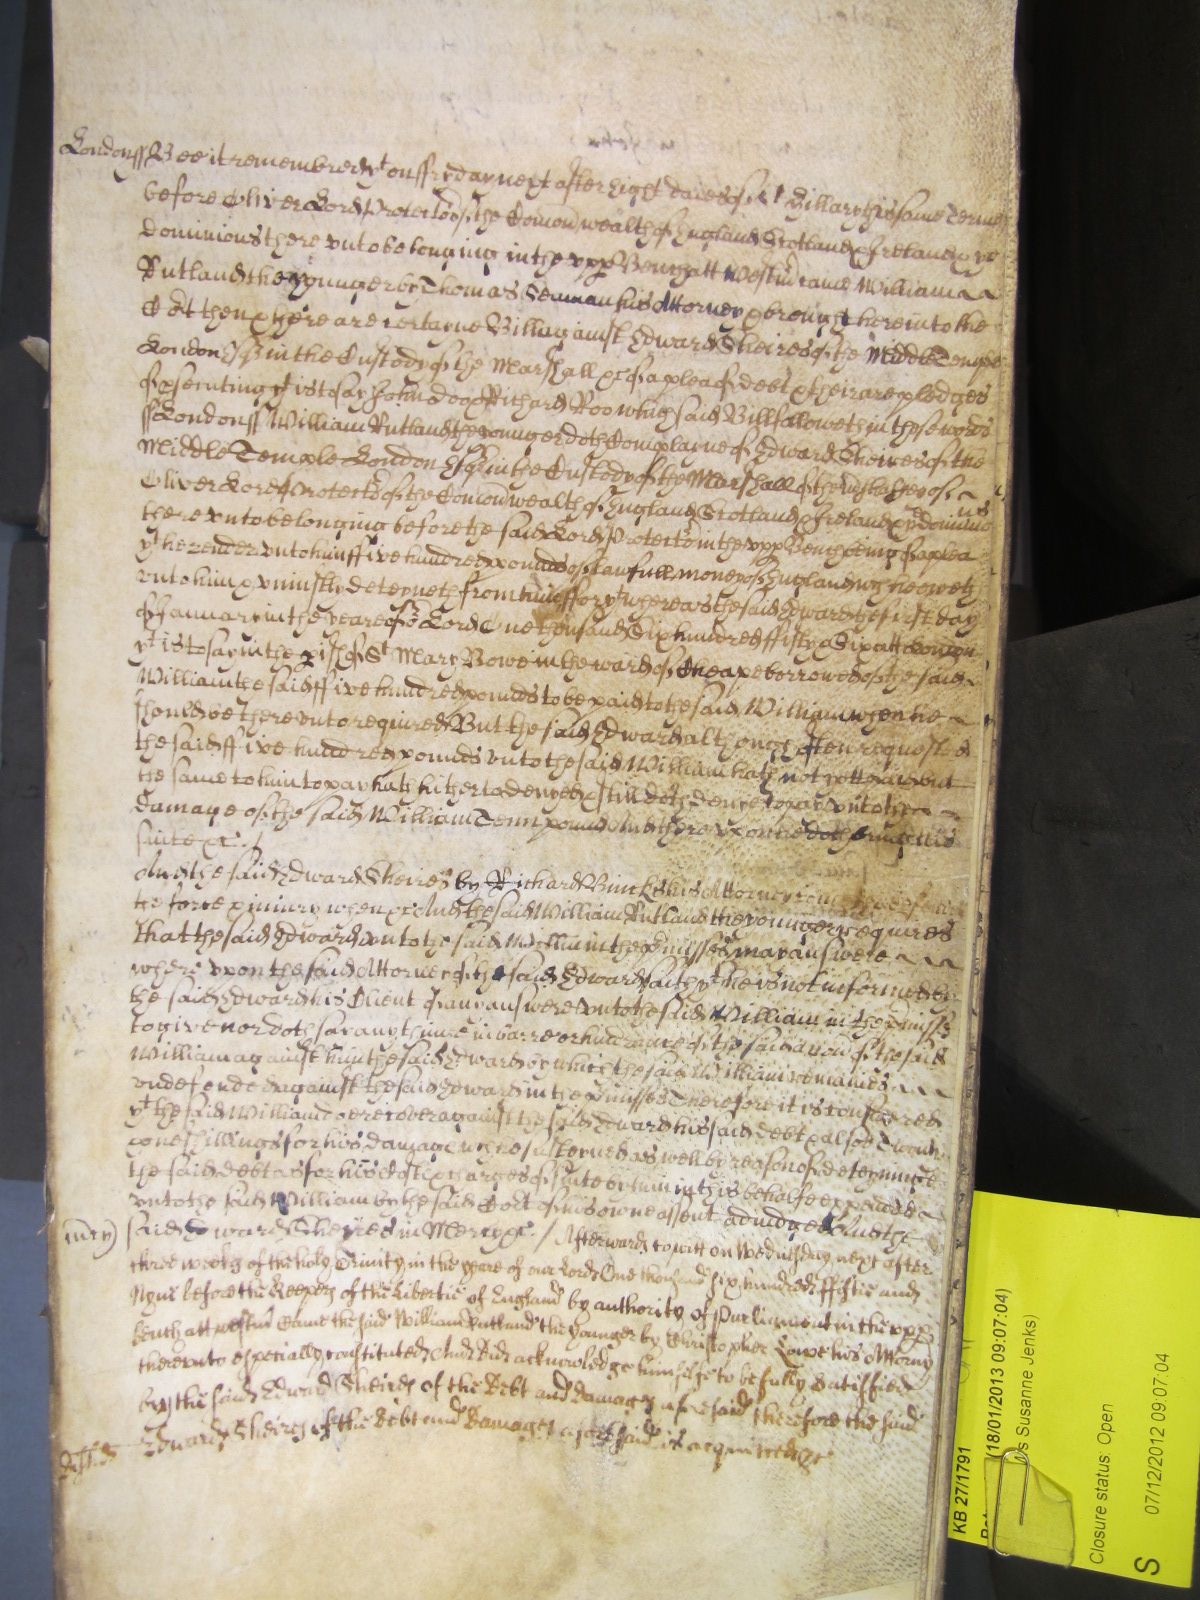 London ss Bee it remembred yt on ffryday next after Eight daies of St Hillary this same Terme
before Oliver Lord Protector of the Comonwealth of England Scotland & Ireland & ye
dominions there unto belonging in the upp Bench att Westmr came William
Rutland the younger by Thomas Seaman his Attorney & brought here into the
Cort then & there a certayne Bill against Edward Sheires of the Middle Temple
London Esqr in the Custody of the Marshall &c of a plea of debt & their are pledges
of prosecuting yt is to say John Doo & Richard Roo which said Bill followeth in these words
ss London ss William Rutland the younger doth Complayne of Edward Sheires of the
Middle Temple London Esqr in the Custody of the Marshall of
Oliver Lord Protector of the Comonwealth of England Scotland & Ireland & ye dominions
there unto belonging before the said Lord Protector in the upp Bench being of a plea
yt he render unto him ffive hundred pounds of lawfull money of England wch he oweth
unto him & uniustly deteyneth from him ffor yt whereas the said Edward the first day
of January in the yeare of or Lord One thousand Six hundred ffifty & Six att London
yt is to say in the pish of St Mary Bowe in the ward of Cheape borrowed of the said
William the said ffive hundred pounds to be paid to the said William when he
should be there unto required But the said Edward although often requested
the said ffive hundred pounds unto the said William hath not yett paid but
the same to him to pay hath hitherto denyed & still doth denye to pay unto the
damage of the said William Tenn pounds And there upon he doth bring this
suite &c /
And the said Edward Sheires by Richard Binckes his Attorney
the force & iniury when &c And the said William Rutland the younger requires
that the said Edward unto the said William in the pmisses may answere
where upon the said Attorney of the said Edward saith yt he is not informed by
the said Edward his Client of any answere unto the said William in the pmisses
to give nor doth say any thinge in barre or hindrance of the said acon of the said
William against him the said Edward by which the said William remaines
undefended against the said Edward in the pmisses Therefore it is considered
yt the said William doe recover against the said Edward his said debt & also Twenty
one shillings for his damages wch he susteyned as well by reason of deteyninge
the said debt as for his Costs & charges of suite by him in this behalfe expended
unto the said William by the said Cort of his owne assent adiudged And the
mercy said Edward Sheires in Mercy &c / Afterwards to witt on Wednesday next after
three weekes of the holy Trinity in the yeare of our Lord One thousand six hundred ffiftie and
Nyne before the Keepers of the Libertie of England by authority of Parliament in the upp
bench att Westmr Came the said William Rutland the younger by Christopher Lowe his Attorny
thereunto especially constituted And did acknowledge himselfe to be fully Satisfied
by the said Edward Sheires of the Debt and Damages aforesaid Therefore the said
Edward Sheires of the Debt and Damages aforesaid is acquitted &c
KB 27/1791
(18/01/2013 09:07:04)
Ms Susanne Jenks)
Closure status: Open
07/12/2012 09:07:04
S